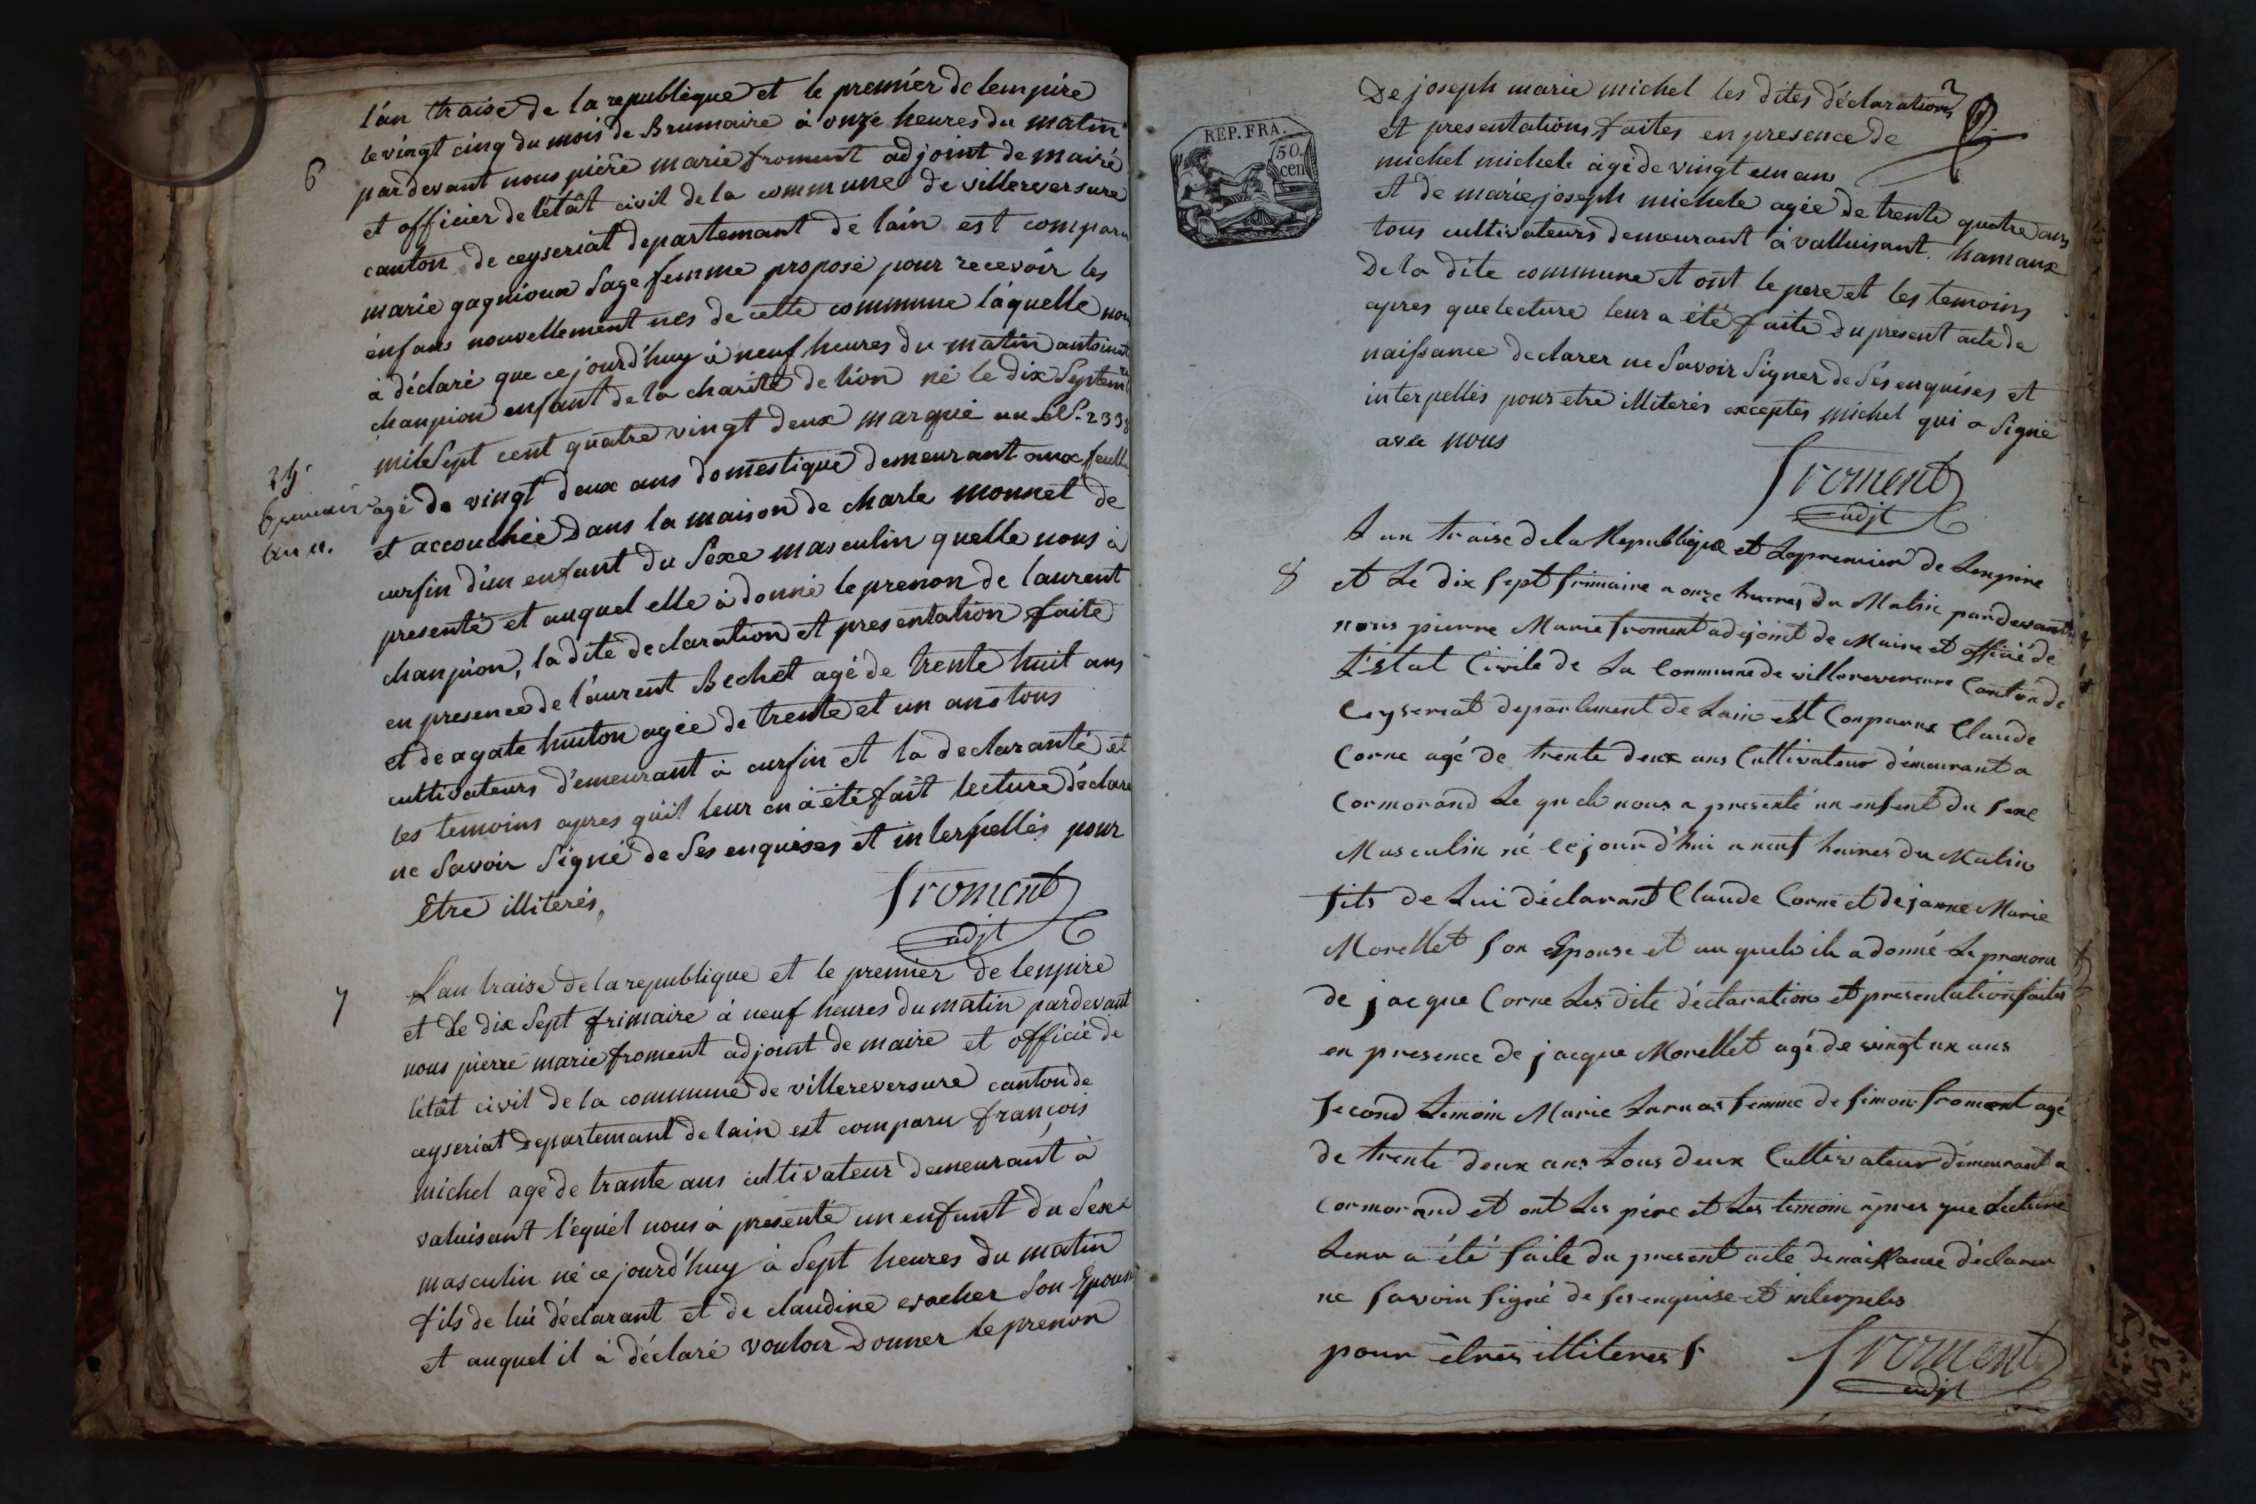 6
l'an traise de la republique et le premier de lempire
le vingt cinq du mois de Brumaire à onze heures du matin
par devant nous pierre marie froment adjoint de maire
et officier de l'état civil de la commune de villereversure
canton de ceyseriat departemant de lain est comparu
marie gagnioux sage femme proposé pour recevoir les
énfans nouvellement nes de cette commune láquelle nous
à déclaré que ce jourd'huy à neuf heures du matin antoinette
chanpion enfant de la charité de lion né le dix Septem
mil Sept cent quatre vingt deux marqué au
25
brumaire
an
agé de vingt deux ans domestique demeurant aux
et accouchée dans la maison de charle monnet de
curfin d'un enfant du Sexe masculin quelle nous à
presenté et auquel elle à donné le prenon de laurent
chanpion, la dite declaration et presentation faite
en presence de l'aurent Bechet agé de trente huit ans
et de agate huiton agée de trente et un ans tous
cultivateurs d'emeurant à curfin et la declarante et
les temoins apres qu'il leur en à été fait lecture déclare
ne Savoir Signé de Ses enquises et interpellés pour
être illiterés,
froment
adjt
7
L'an traise de la republique et le premier de lenpire
et Le dix Sept frimaire à neuf heures du matin pardevant
nous pierre marie froment adjoint de maire et officié de
létât civil de la commune de villereversure canton de
ceyseriat departemant de lain est comparu françois
michel agé de trante ans cultivateur demeurant à
valuisant léquel nous à presenté un enfant du Sexe
masculin né ce jourd'huy à Sept heures du matin
fils de lui déclarant et de claudine vacher Son Epouse
et auquel il à déclaré vouloir Donner le prenon
REP. FRA.
50.
cen
De joseph marie michel les dites déclarations
et presentations faites en presence de
michel michele agé de vingt un ans
et de marie joseph michele agée de trente quatre ans
tous cultivateurs demeurant à valluisant hamaux
De la dite commune et ont le pere et les temoins
apres que lecture leur a été faite du present acte de
naissance declarer ne Savoir Signer de Ses enquises et
interpellés pour etre illiterés exceptés michel qui a Signé
avec nous
froment
adjt
8
L an traise de la Republique et Le premier de Lenpire
et Le dix sept frimaire a onze heures du Matin pardevant
nous pierre Marie froment adejoint de Maire et officié de
L'état Civile de La Commune de villereversure Canton de
Ceyseriat deparlement de Lain est Conparue Claude
Corne agé de trente deux ans Cultivateur démeurant a
Cormorand Le quele nous a presenté un enfent du sexe
Masculin né cejourd'hui a neuf heures du Matin
fils de Lui déclarant Claude Corne et de janne Marie
Morellet son Epouse et au quele ile a donné Le prenom
de jacque Corne Les dite déclaration et presentation faites
en presence de jacque Morellet agé de vingt ux ans
second temoin Marie femme de simon froment agé
de trente deux ans tous deux Cultivateur démeurant a
Cormorand et ont Les pére et Les temoin apres que Lecture
Leur a été faite du present acte denaissance déclarer
ne savoir signé de ses enquise et interpelés
pour êtres illiteres
froment
adjt